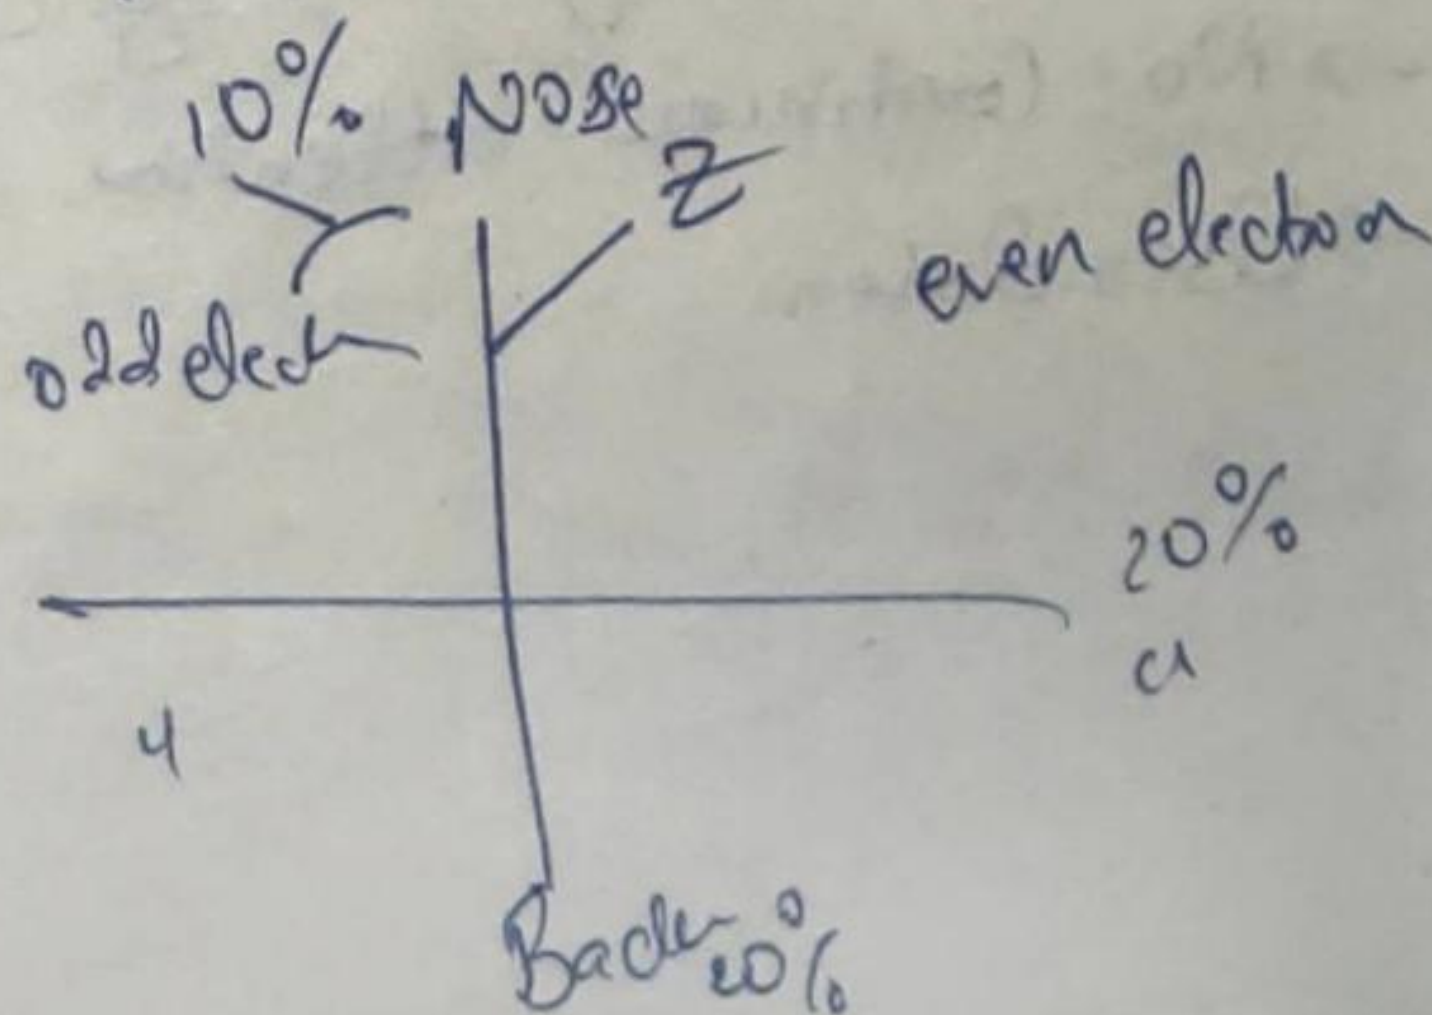 10% Nose
Z
even electron
odd elect
20%
4
20%